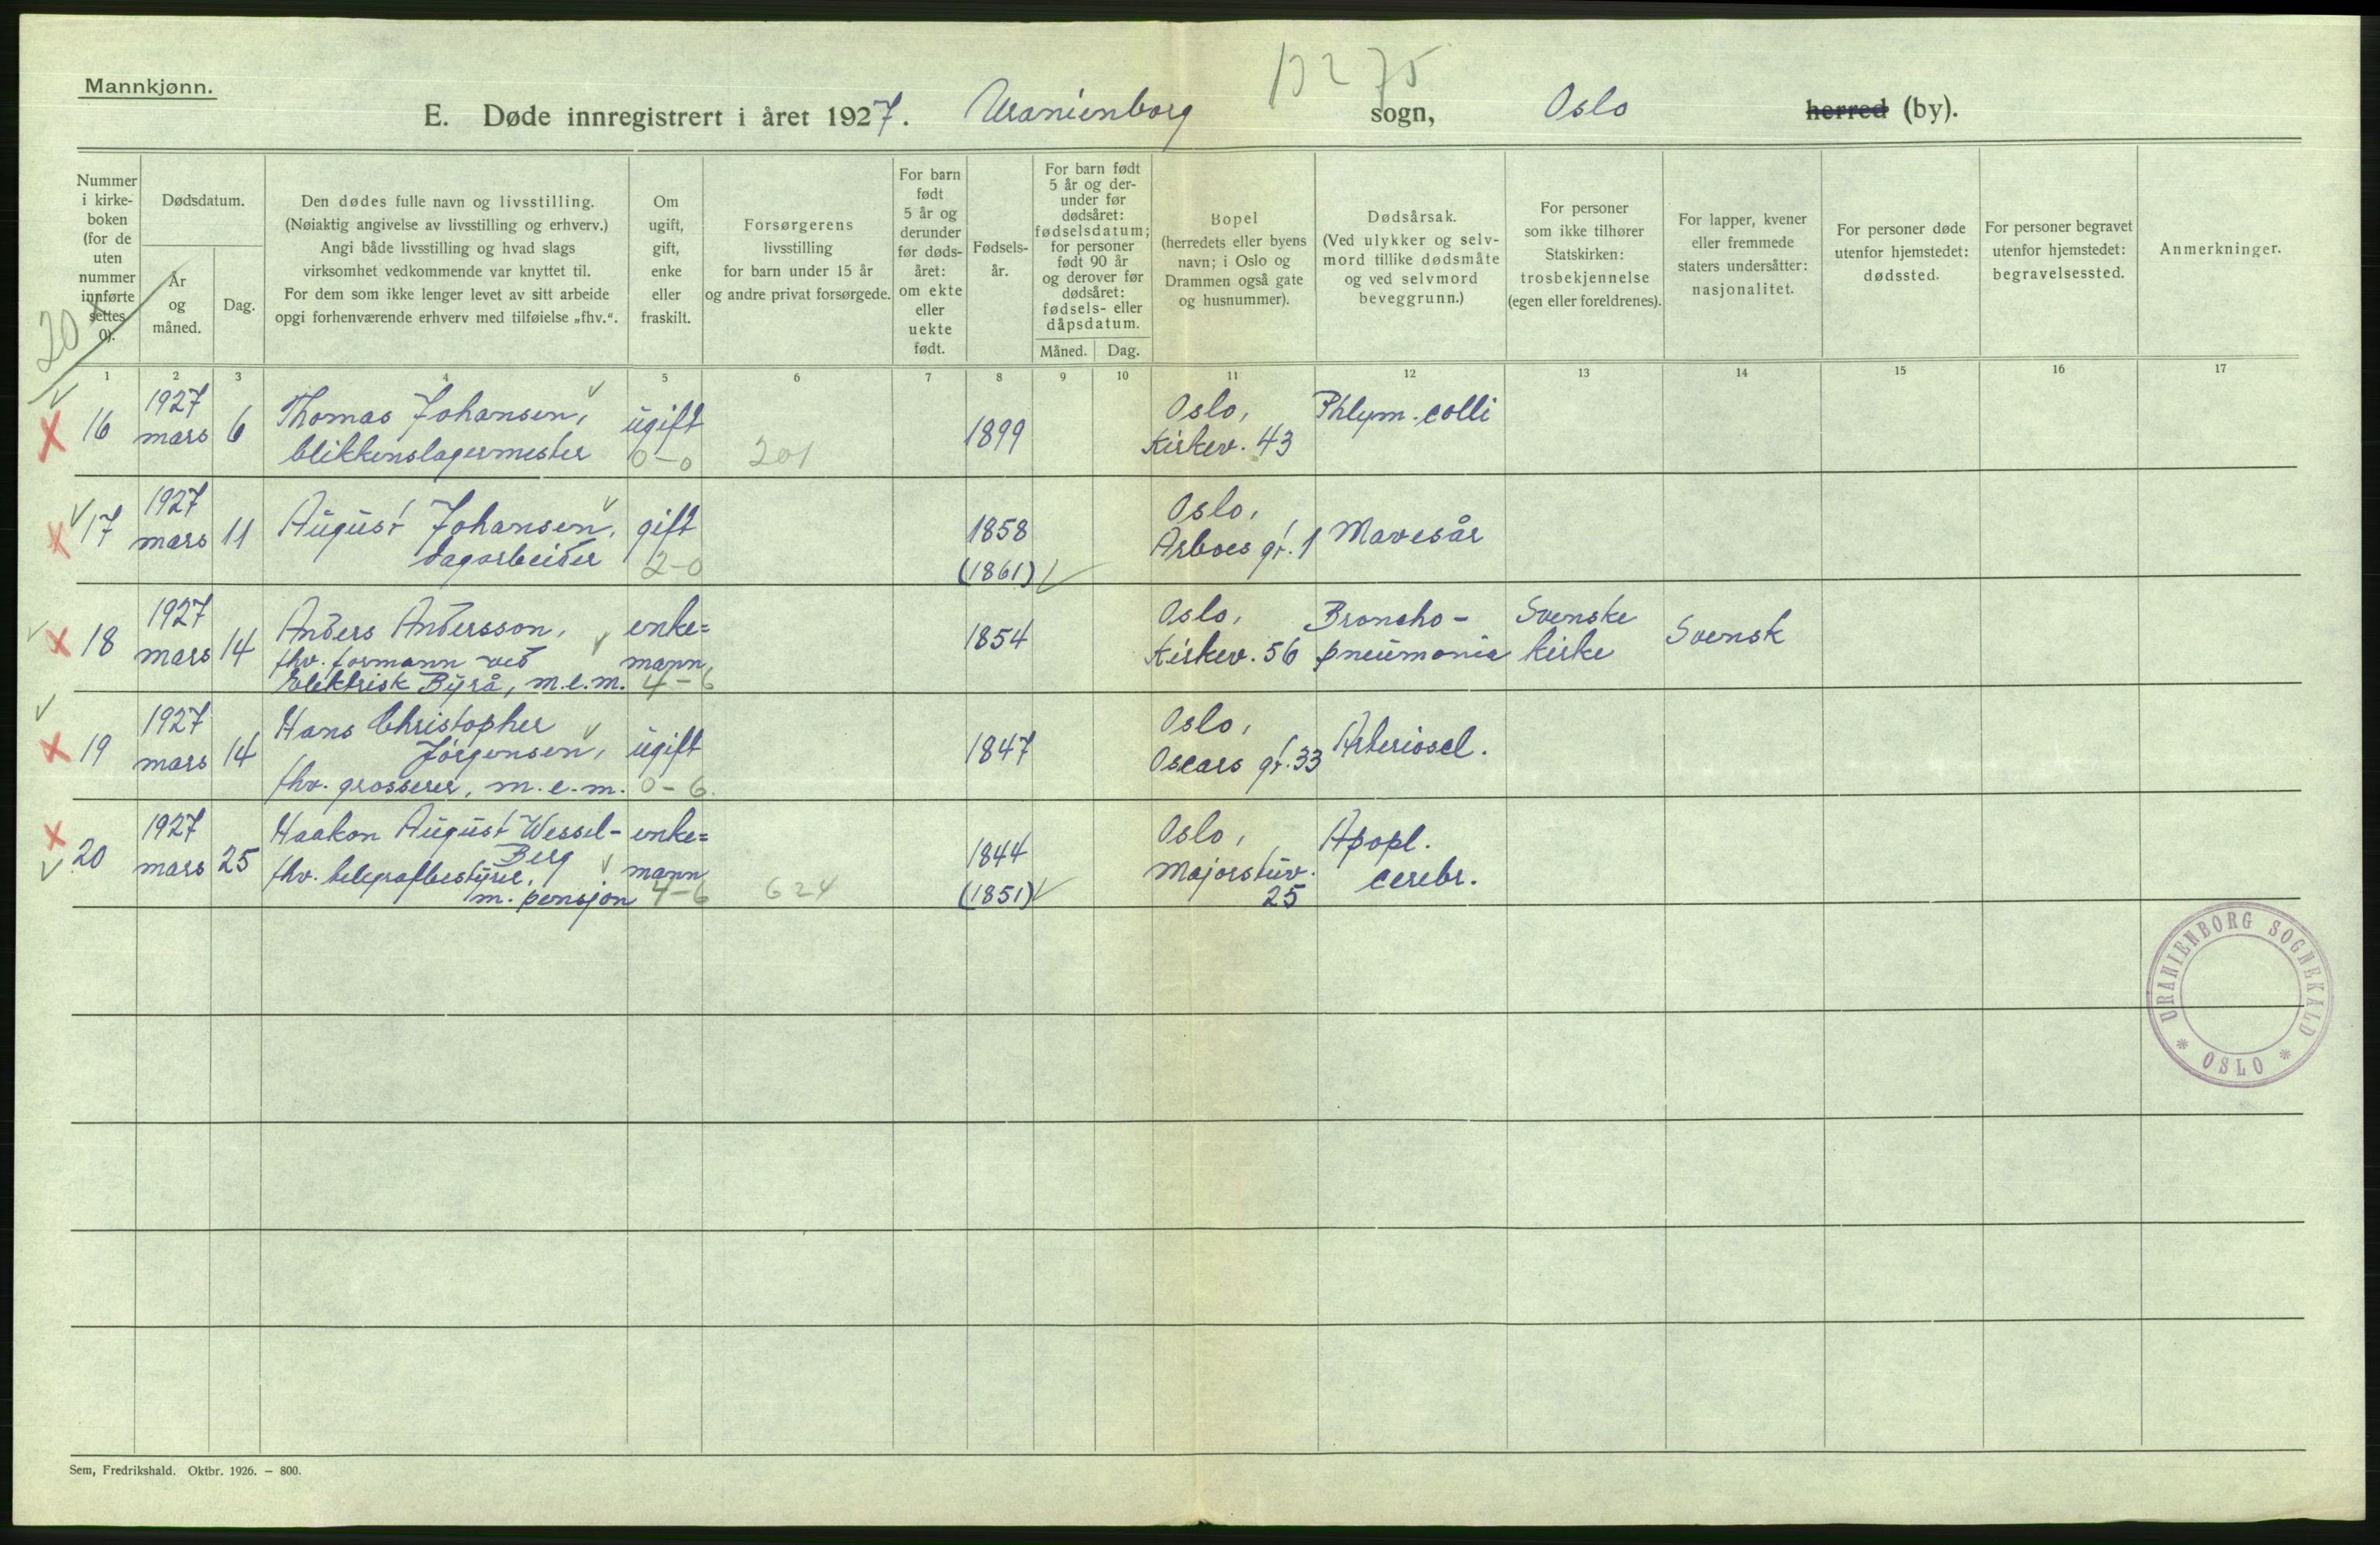 Mannkjønn.
13275
E. Døde innregistrert i året 1927. Uranienborg sogn, Oslo herred (by).
Nummer i kirke-boken (for de uten nummer innførte settes 0).
Dødsdatum.
År og måned.
Dag.
Den dødes fulle navn og livsstilling.
(Nøiaktig angivelse av livsstilling og erhverv.)
Angi både livsstilling og hvad slags
virksomhet vedkommende var knyttet til.
For dem som ikke lenger levet av sitt arbeide
opgi forhenværende erhverv med tilføielse „fhv.“.
Om ugift, gift, enke eller fraskilt.
Forsørgerens
livsstilling
for barn under 15 år
og andre privat forsørgede.
For barn født 5 år og derunder før døds-året: om ekte eller uekte født.
Fødsels-år.
For barn født 5 år og der-under før dødsåret: fødselsdatum; for personer født 90 år og derover før dødsåret: fødsels- eller dåpsdatum.
Måned.
Dag.
Bopel
(herredets eller byens
navn; i Oslo og
Drammen også gate
og husnummer).
Dødsårsak.
(Ved ulykker og selv-
mord tillike dødsmåte
og ved selvmord
beveggrunn.)
For personer
som ikke tilhører
Statskirken:
trosbekjennelse
(egen eller foreldrenes).
For lapper, kvener
eller fremmede
staters undersåtter:
nasjonalitet.
For personer døde
utenfor hjemstedet:
dødssted.
For personer begravet
utenfor hjemstedet:
begravelsessted.
Anmerkninger.
20
1 2 3 4 5 6 7 8 9 10 11 12 13 14 15 16 17
16 1927 mars 6 Thomas Johansen, ugift 1899 Oslo, Phlegm. colli
blikkenslagermester 0-0 201 Kirkev. 43
17 1927 mars 11 August Johansen, gift 1858 Oslo, Mavesår
dagarbeider 2-0 (1861) Arboes gt. 1
18 1927 mars 14 Anders Andersson, enke= 1854 Oslo, Broncho- Svenske Svensk
fhv. formann ved mann Kirkev. 56 pneumonia kirke
Elektrisk Byrå, m.e.m. 4-6
19 1927 mars 14 Hans Christopher ugift 1847 Oslo, Arterioscl.
Jörgensen, Oscars gt. 33
fhv. grosserer, m.e.m. 0-6.
20 1927 mars 25 Haakon August Wessel- enke= 1844 Oslo, Apopl.
Berg mann Majorstuv. cerebr.
fhv. telegrafbestyrer, (1851) 25
m. pensjon 4-6 624
URANIENBORG SOGNEKALD * OSLO *
Sem, Fredrikshald. Oktbr. 1926. – 800.